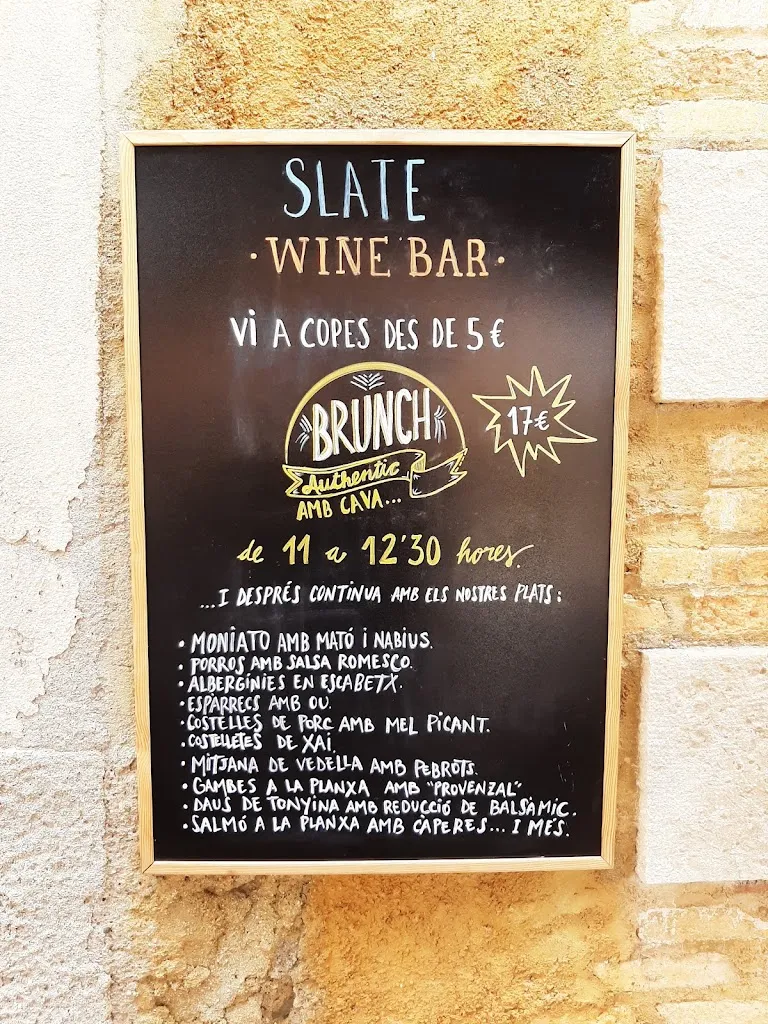 SLATE
·WINE BAR·
Vi A COPES DES DE 5€
BRUNCH
17€
Authentic
AMB CAVA...
de 11 a 12'30 hores.
...I DESPRÉS CONTINUA AMB ELS NOSTRES PLATS:
·MONIATO AMB MATÓ I NABIUS.
·PORROS AMB SALSA ROMESCO.
·ALBERGÍNIES EN ESCABETX.
·ESPARRECS AMB OU.
·COSTELLES DE PORC AMB MEL PICANT.
·COSTELLETES DE XAI.
·MITJANA DE VEDELLA AMB PEBROTS.
·GAMBES A LA PLANXA AMB "PROVENZAL"
·DAUS DE TONYINA AMB REDUCCIÓ DE BALSÀMIC.
·SALMÓ A LA PLANXA AMB CÀPERES... I MÉS.